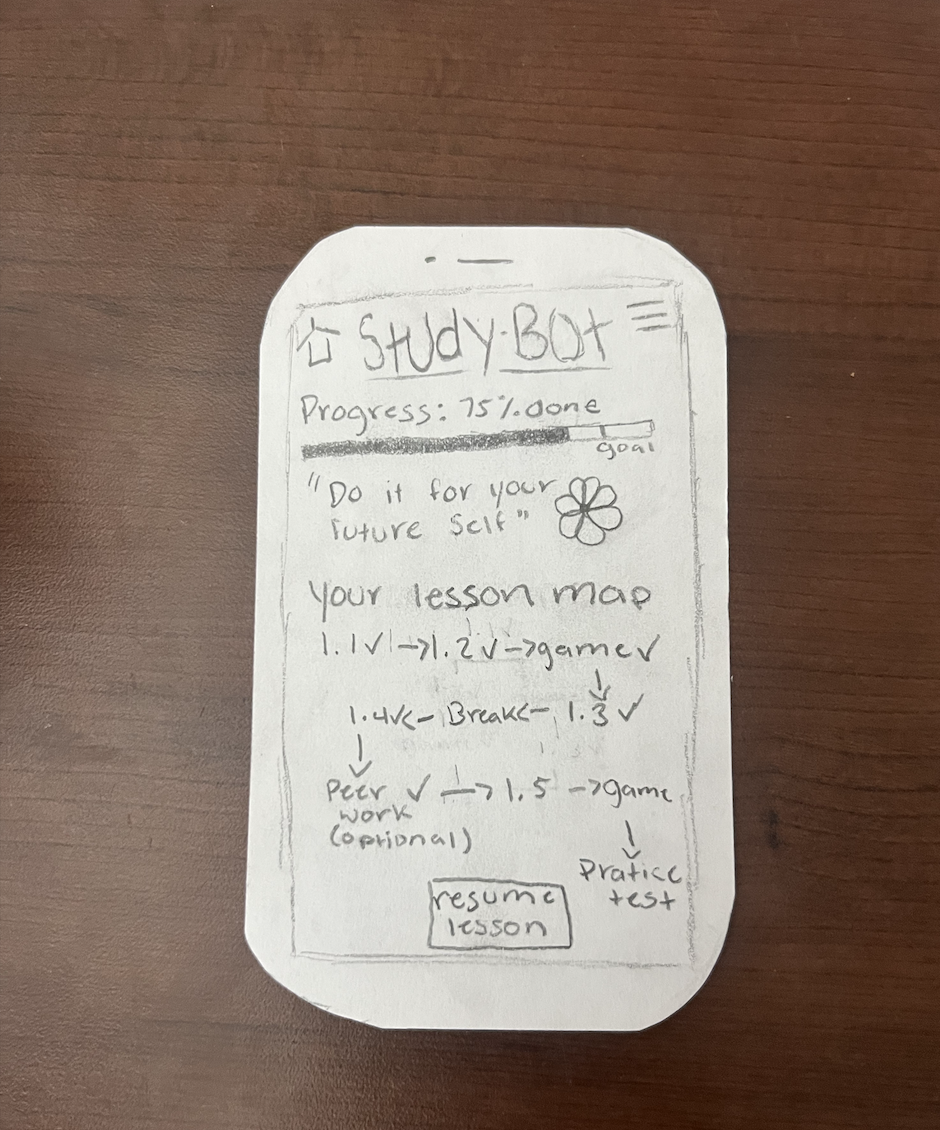 Study-Bot
Progress: 75% done
goal
"Do it for your
future self"
Your lesson map
1.1✓ → 1.2 ✓ → game ✓
1.4✓ ← Break ← 1.3 ✓
Peer ✓ → 1.5 → game
work
(optional)
Pratice
test
resume
lesson